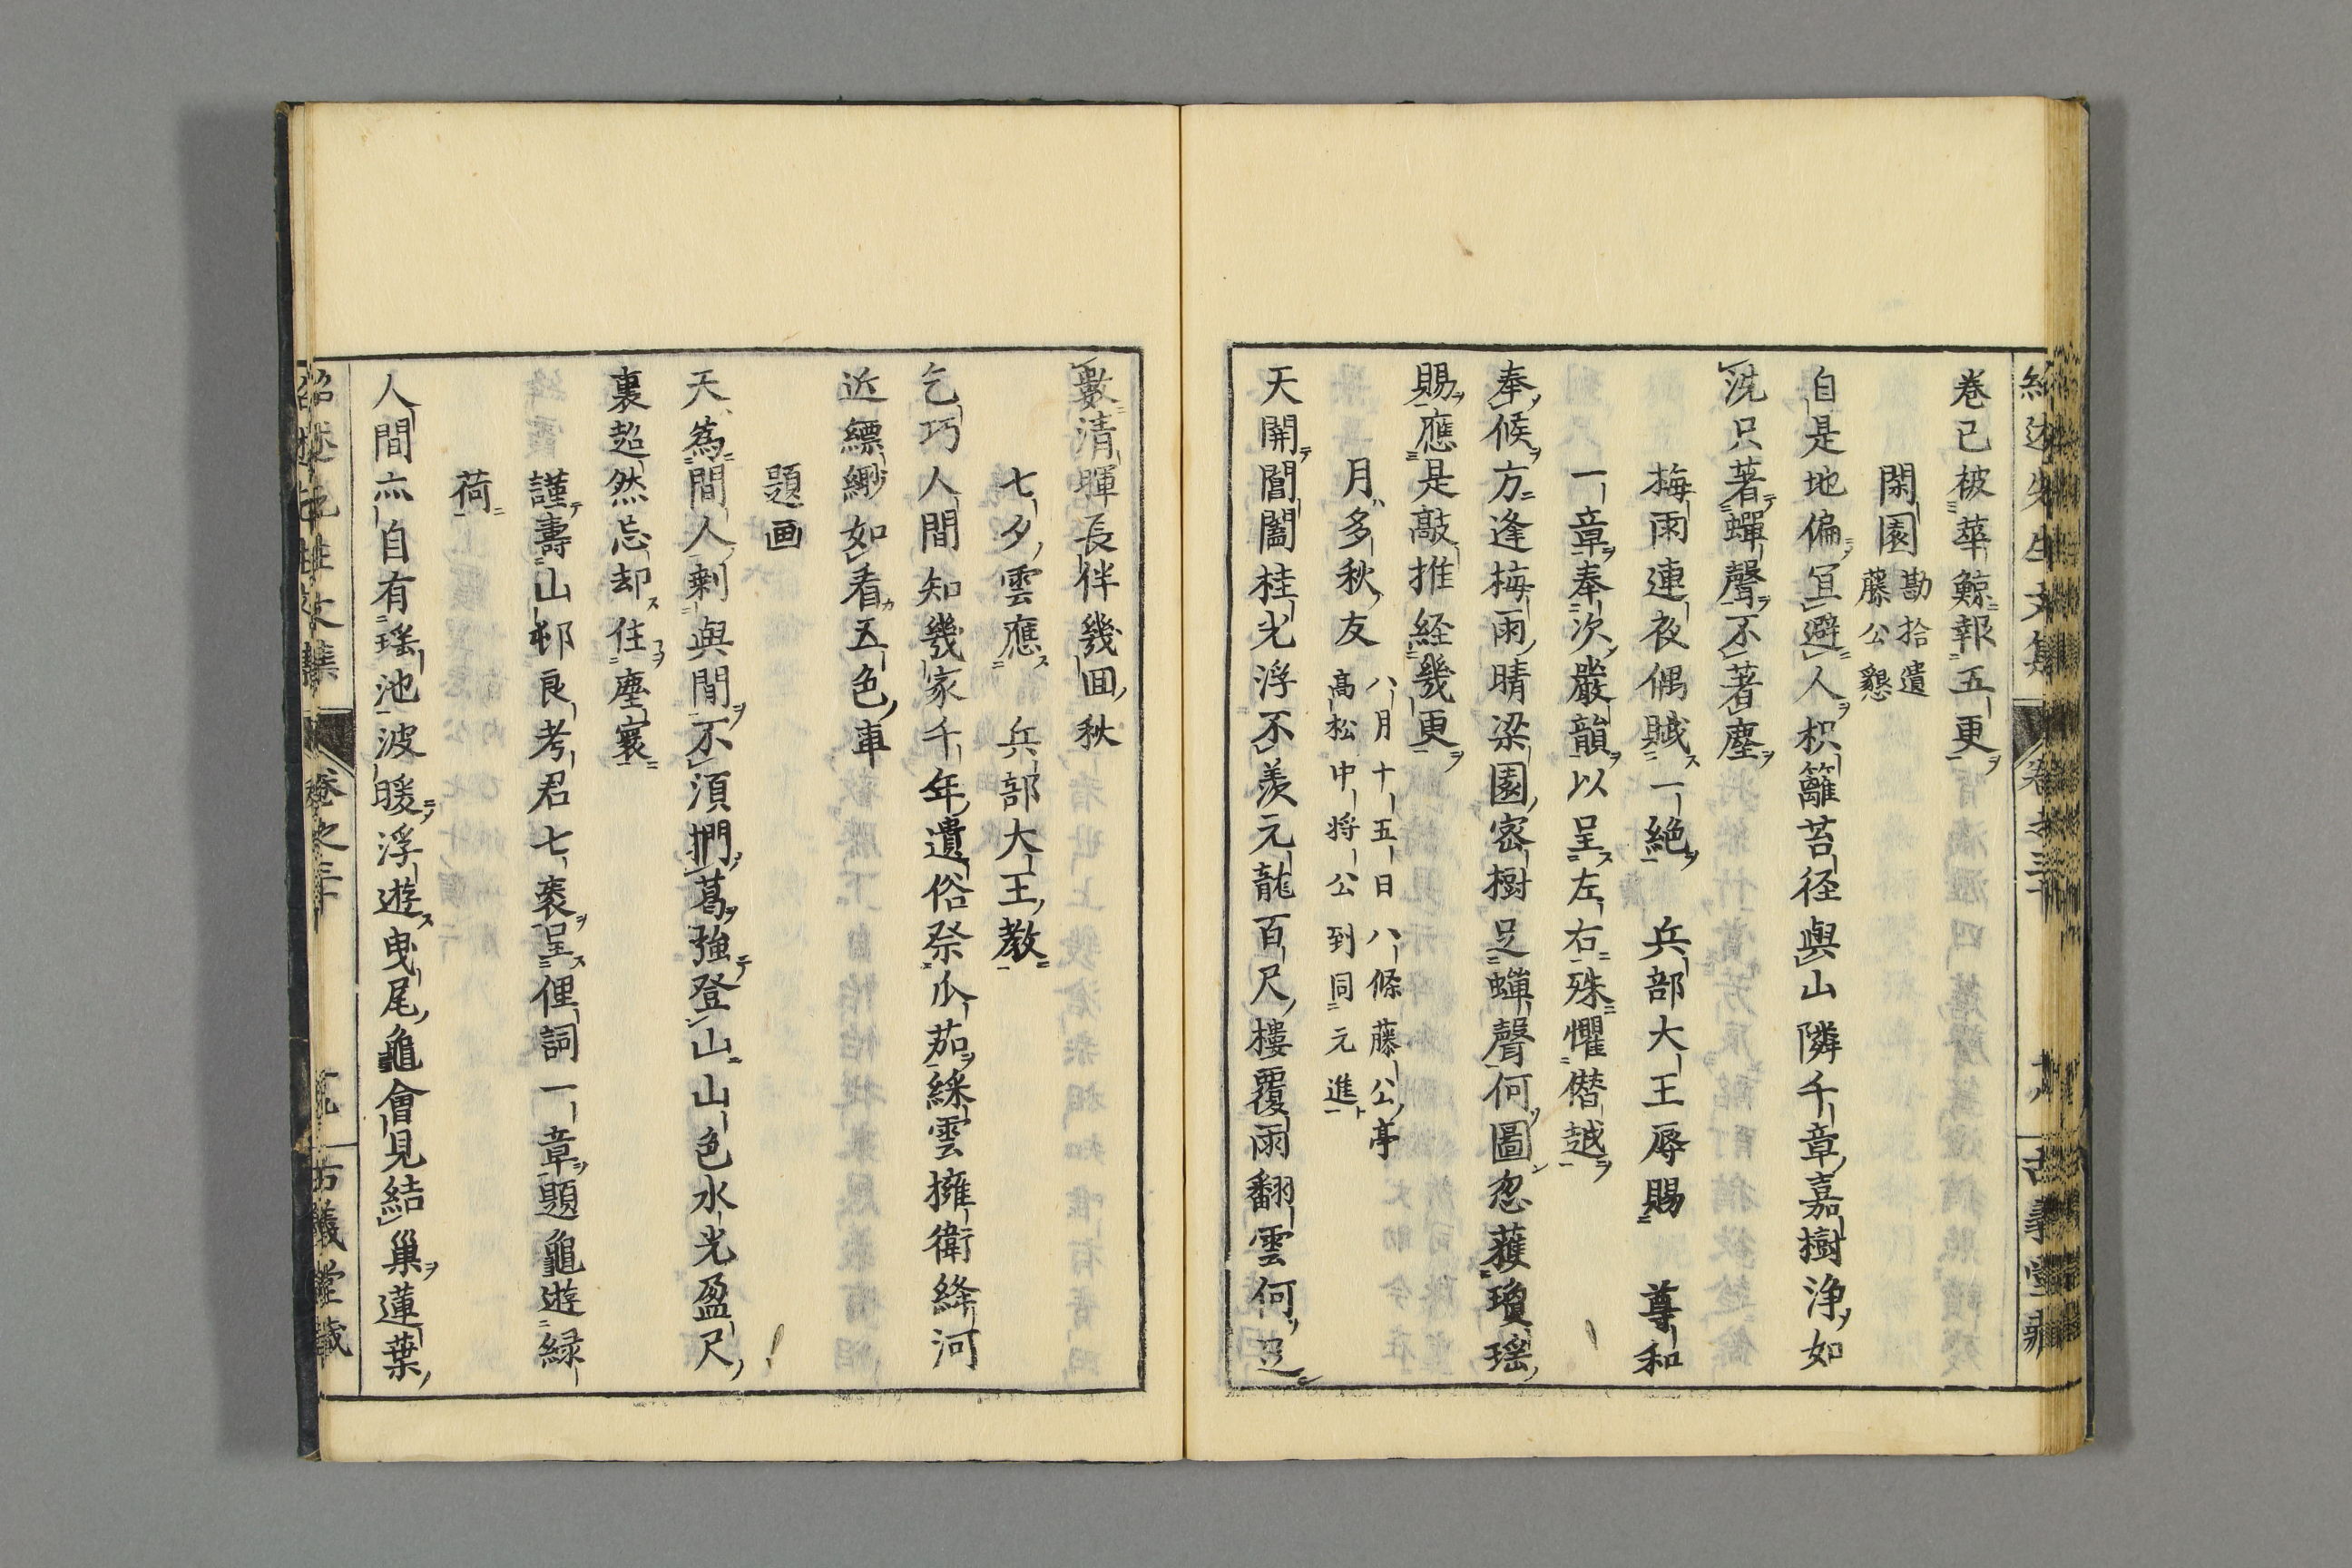 巻已被華鯨報五更
閑園
勘拾遺
藤公懇
自是地偏冝避人枳籬苔径與山隣千章嘉樹浄如
洗只著蟬聲不著塵
梅雨連夜偶賊一絶 兵部大王辱賜 尊和
一章奉次嚴韻以呈左右殊懼僭越
奉候方逢梅雨晴梁園密樹足蟬聲何圖忽獲瓊瑶
賜應是敲推経幾更
月多秋友
八月十五日八條藤公亭
髙松中将公到同元進
天開閶闔桂光浮不羨元龍百尺樓覆雨翻雲何足
數清暉長伴幾回秋
七夕雲應 兵部大王教
乞巧人間知幾家千年遺俗祭瓜茄綵雲擁衛絳河
近縹緲如看五色車
題画
天為間人剰與間不須捫葛強登山山色水光盈尺
裏超然忘却住塵寰
謹壽山邨良考君七袠呈俚詞一章題龜遊緑
荷
人間亦自有瑶池波暖浮遊曳尾龜會見結巢蓮葉
紹述先生文集 巻之三十 古義堂蔵